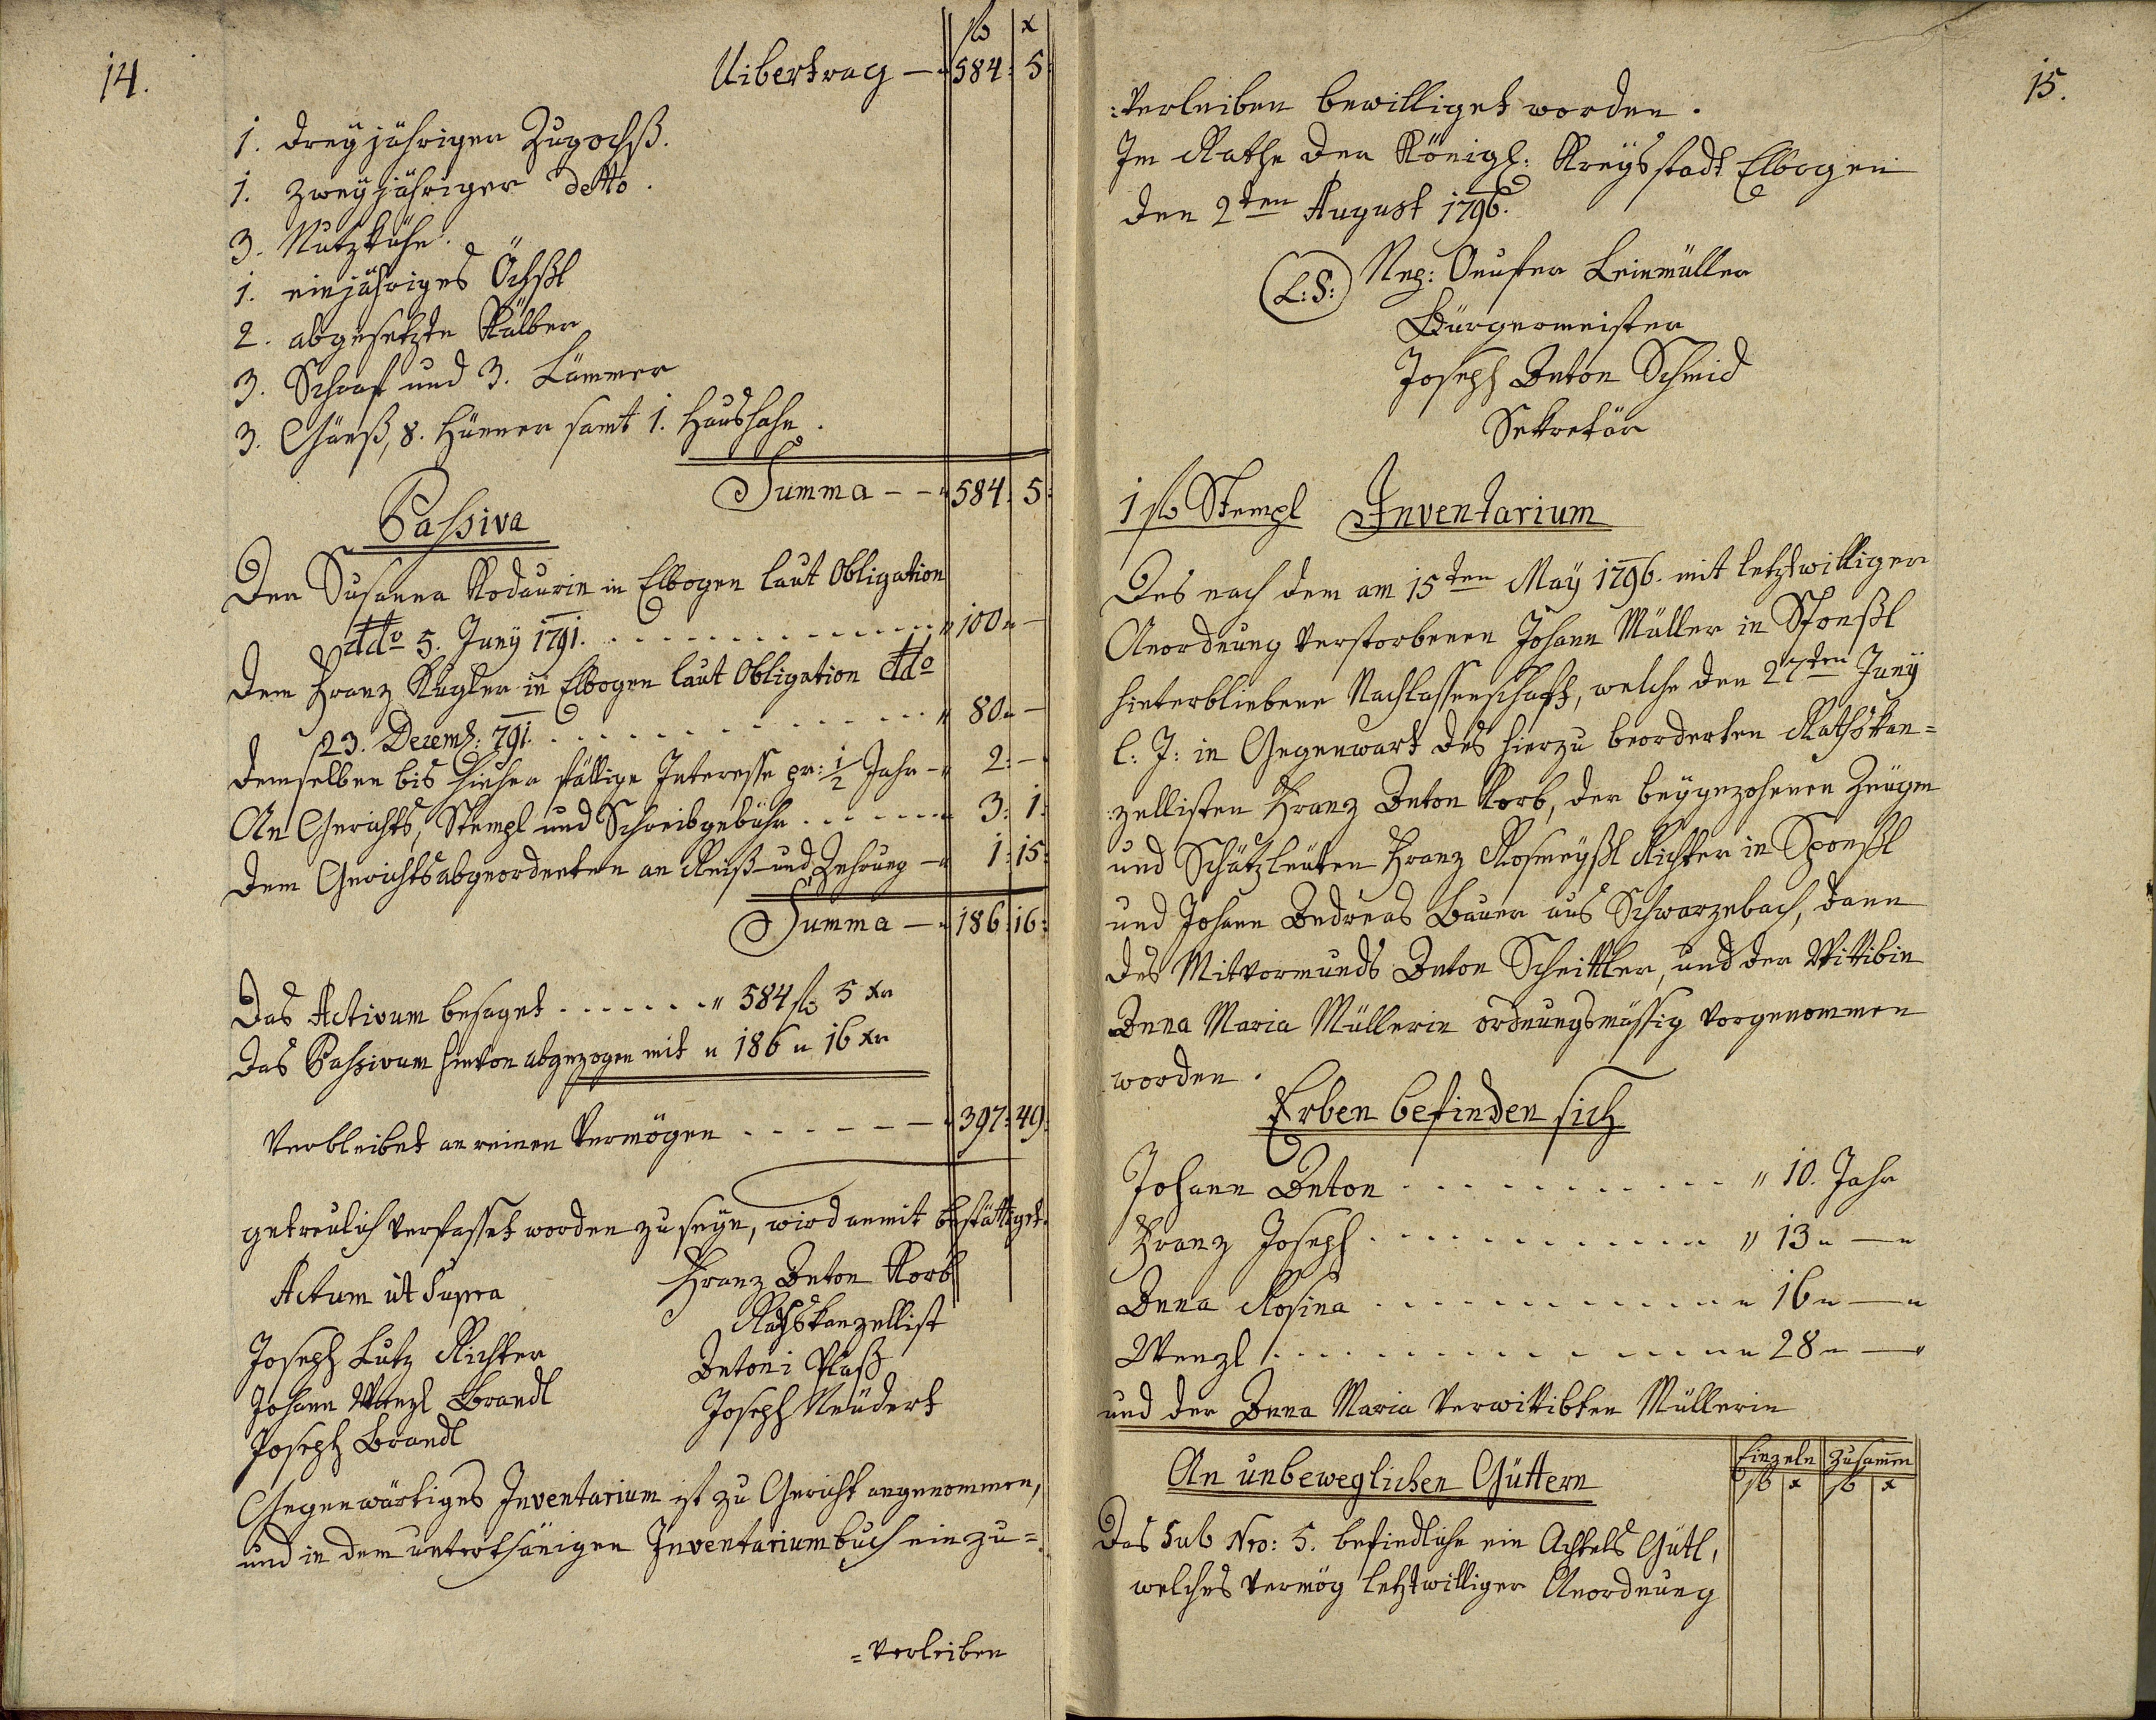 14.
fl x
Uibertrag — 584: 5
1. dreyjähriger Zugochß.
1. zweyjähriger detto.
3. Nutzkühe.
1. einjähriges Öchßl
2. abgesetzte Kälber
3. Schaaf und 3. Lämmer
3. Gänß, 8. Hünner samt 1. Haushahn.
Summa — 584: 5:
Passiva
Der Susanna in Elbogen laut Obligation
ddo 5. Juny 1791. . . . . . . . . " 100 " —
Dem Franz Kugler in Elbogen laut Obligation ddo
23. Decemb: 791. . . . . . . . . " 80 " —
demselben bis hieher fällige Interesse pr: 1/2 Jahr — 2: —
An Gerichts, Stempl und Schreibgebühr . . . . . . . 3: 1:
dem Gerichtsabgeordneten an Reiß- und Zehrung — 1: 15:
Summa — 186: 16:
Das Activum besaget . . . . . . " 584 fl 5 xr
Das Passivum hievon abgezogen mit " 186 " 16 xr
Verbleibet an reinen Vermögen . . . . . . — 397: 49:
getreulich verfasset worden zu seyn, wird anmit bestättiget.
Actum ut Supra Franz Anton Korb
Rathskanzellist
Joseph Lutz Richter Antoni Plaß
Johann Wenzl Brandl Joseph Neüdert
Joseph Brandl
Gegenwärtiges Inventarium ist zu Gericht angenommen,
und in dem unterthänigen Inventariumbuch einzu=
=verleiben
15.
:verleiben bewilliget worden.
Im Rathe der Königl: Kreysstadt Elbogen
den 2ten August 1796.
(L:S:) Nep: Leinmüller
Bürgermeister
Joseph Anton Schmid
Sekretär
1 fl Stempl Inventarium
Des nach dem am 15ten May 1796. mit letztwilliger
Anordnung verstorbenen Johann Müller in Sponßl
hinterbliebenen Nachlassenschaft, welche den 27ten Juny
l: J: in Gegenwart des hierzu beorderten Rathskan=
:zellisten Franz Anton Korb, der beygezohenen Zeügen
und Schätzleüten Franz Rosmeyßl Richter in Sponßl
und Johann Andreas Bauer aus Schwarzebach, dann
des Mitvormunds Anton Scheittler, und der Wittibin
Anna Maria Müllerin ordnungsmässig vorgenommen
worden.
Erben befinden sich
Johann Anton . . . . . . . . . . . " 10. Jahr
Franz Joseph . . . . . . . . . . . " 13 " — "
Anna Rosina . . . . . . . . . . . " 16 " — "
Wenzl . . . . . . . . . . . . . . " 28 " — "
und der Anna Maria verwittibten Müllerin
Einzeln Zusamen
An unbeweglichen Güttern fl x fl x
Das Sub Nro: 5. befindliche ein Achtels Gütl,
welches vermög letztwilliger Anordnung